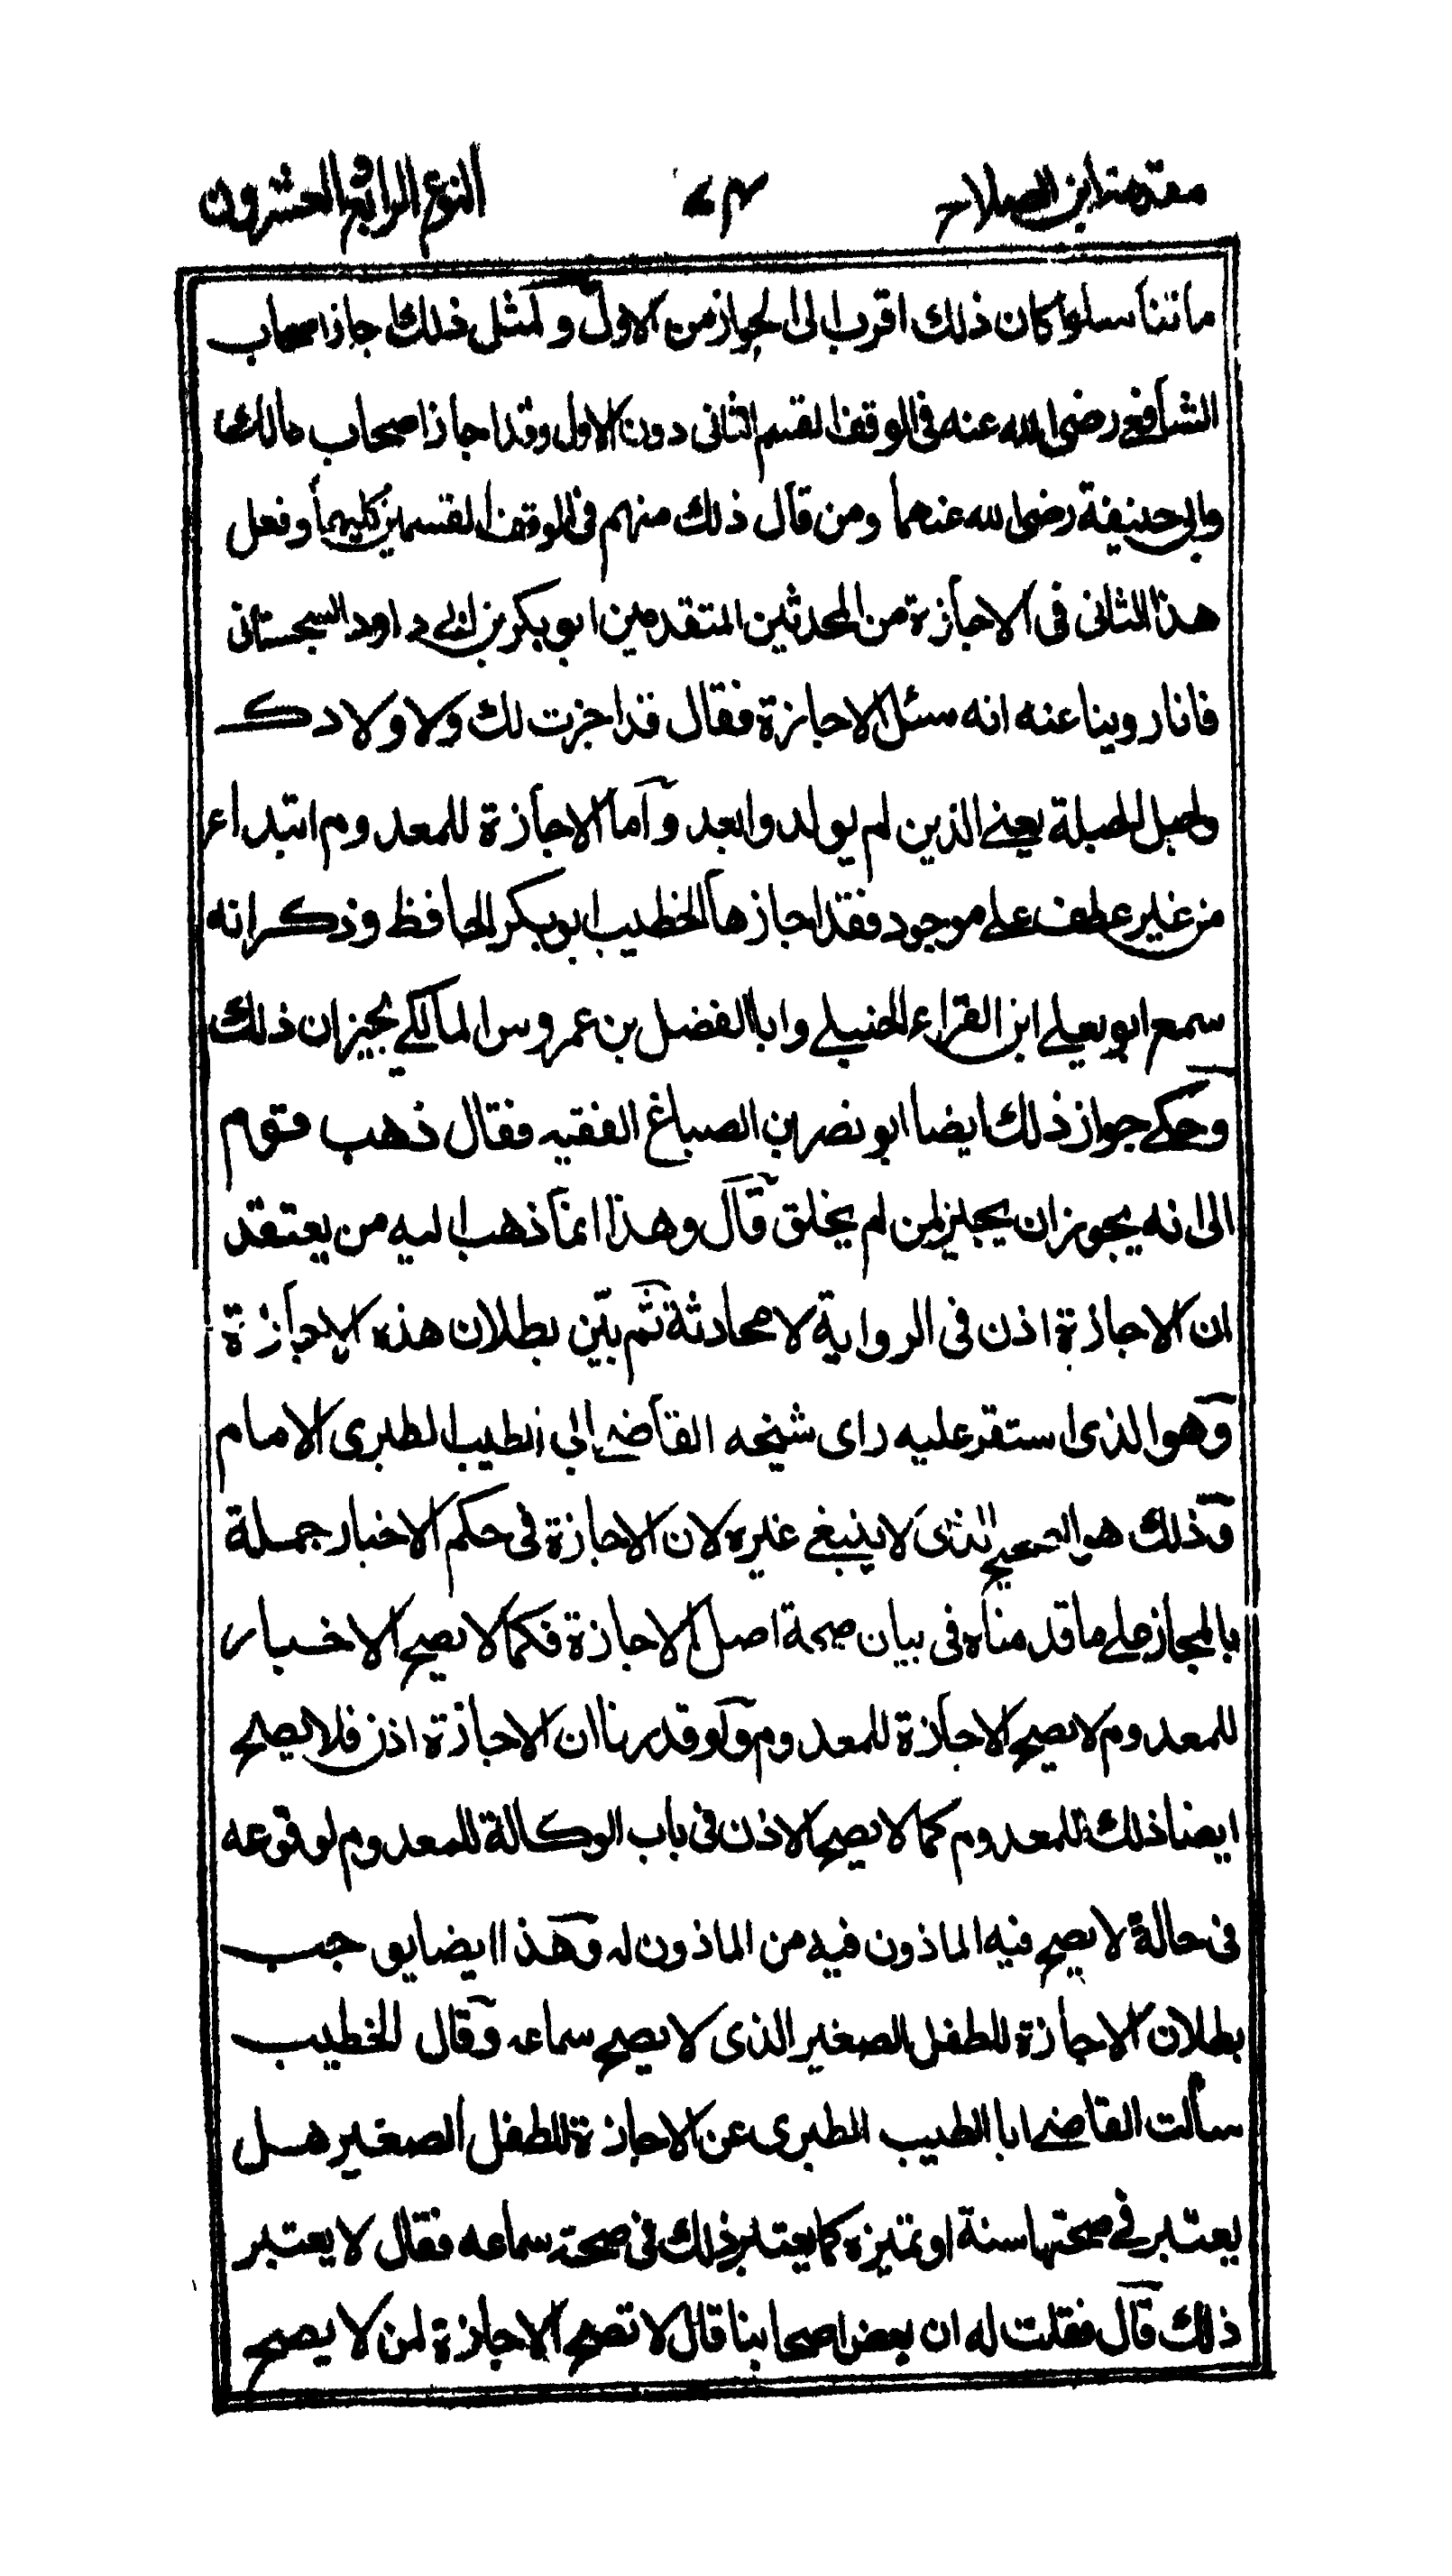 مقدمة ابن الصلاح ٧٤ النوع الرابع العشرون
ما تناسلوا كان ذلك اقرب الى الجواز من الاول ولمثل ذلك اجاز اصحاب
الشافعي رضى الله عنه فى الوقف القسم الثانى دون الاول وقد اجاز اصحاب مالك
وابى حنيفة رضى الله عنهما ومن قال ذلك منهم فى الوقف القسمين كليهما وفعل
هذا الثانى فى الاجازة من المحدثين المتقدمين ابو بكر بن ابى داود السجستانى
فانا روينا عنه انه سئل الاجازة فقال قد اجزت لك ولاولادك
ولحبل الحبلة يعنى الذين لم يولدوا بعد واما الاجازة للمعدوم ابتداء
من غير عطف على موجود فقد اجازها الخطيب ابو بكر الحافظ وذكر انه
سمع ابو يعلى ابن الفراء الحنبلى وابا الفضل بن عمروس المالكى يجيزان ذلك
وحكى جواز ذلك ايضا ابو نصر بن الصباغ الفقيه فقال ذهب قوم
الى انه يجوز ان يجيز لمن لم يخلق قال وهذا انما ذهب اليه من يعتقد
ان الاجازة اذن فى الرواية لا محادثة ثم بيّن بطلان هذه الاجازة
وهو الذى استقر عليه راى شيخه القاضى ابى الطيب الطبرى الامام
وذلك هو الصحيح الذى لا ينبغى غيره لان الاجازة فى حكم الاخبار جملة
بالمجاز على ما قدمناه فى بيان صحة اصل الاجازة فكما لا يصح الاخبار
للمعدوم لا يصح الاجازة للمعدوم ولو قدرنا ان الاجازة اذن فلا يصح
ايضا ذلك للمعدوم كما لا يصح الاذن فى باب الوكالة للمعدوم لوقوعه
فى حالة لا يصح فيه الماذون فيه من الماذون له وهذا ايضا يوجب
بطلان الاجازة للطفل الصغير الذى لا يصح سماعه وقال الخطيب
سألت القاضى ابا الطيب الطبرى عن الاجازة للطفل الصغير هل
يعتبر فى صحتها سنة او تميزه كما يعتبر ذلك فى صحة سماعه فقال لا يعتبر
ذلك قال فقلت له ان بعض اصحابنا قال لا تصح الاجازة لمن لا يصح